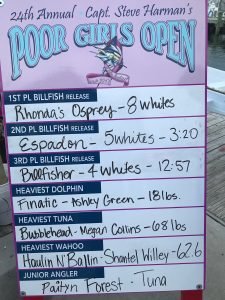 24th Annual Capt. Steve Harman's
POOR GIRLS OPEN
1ST PL BILLFISH RELEASE
Rhonda's Osprey - 8 Whites
2ND PL BILLFISH RELEASE
Espadon - 5 whites - 3:20
3RD PL BILLFISH RELEASE
Billfisher - 4 Whites - 12:57
HEAVIEST DOLPHIN
Finatic - Ashley Green - 18lbs.
HEAVIEST TUNA
Bubblehead - Megan Collins - 68 lbs
HEAVIEST WAHOO
Haulin N' Ballin - Shantel Willey - 62.6
JUNIOR ANGLER
Paityn Forest - Tuna